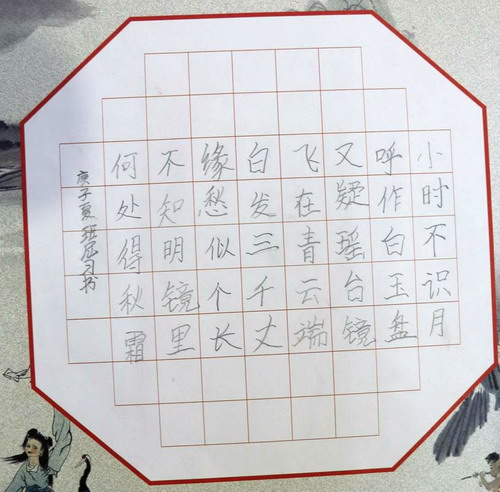 小时不识月
呼作白玉盘
又疑瑶台镜
飞在青云端
白发三千丈
缘愁似个长
不知明镜里
何处得秋霜
庚子夏班屈习书